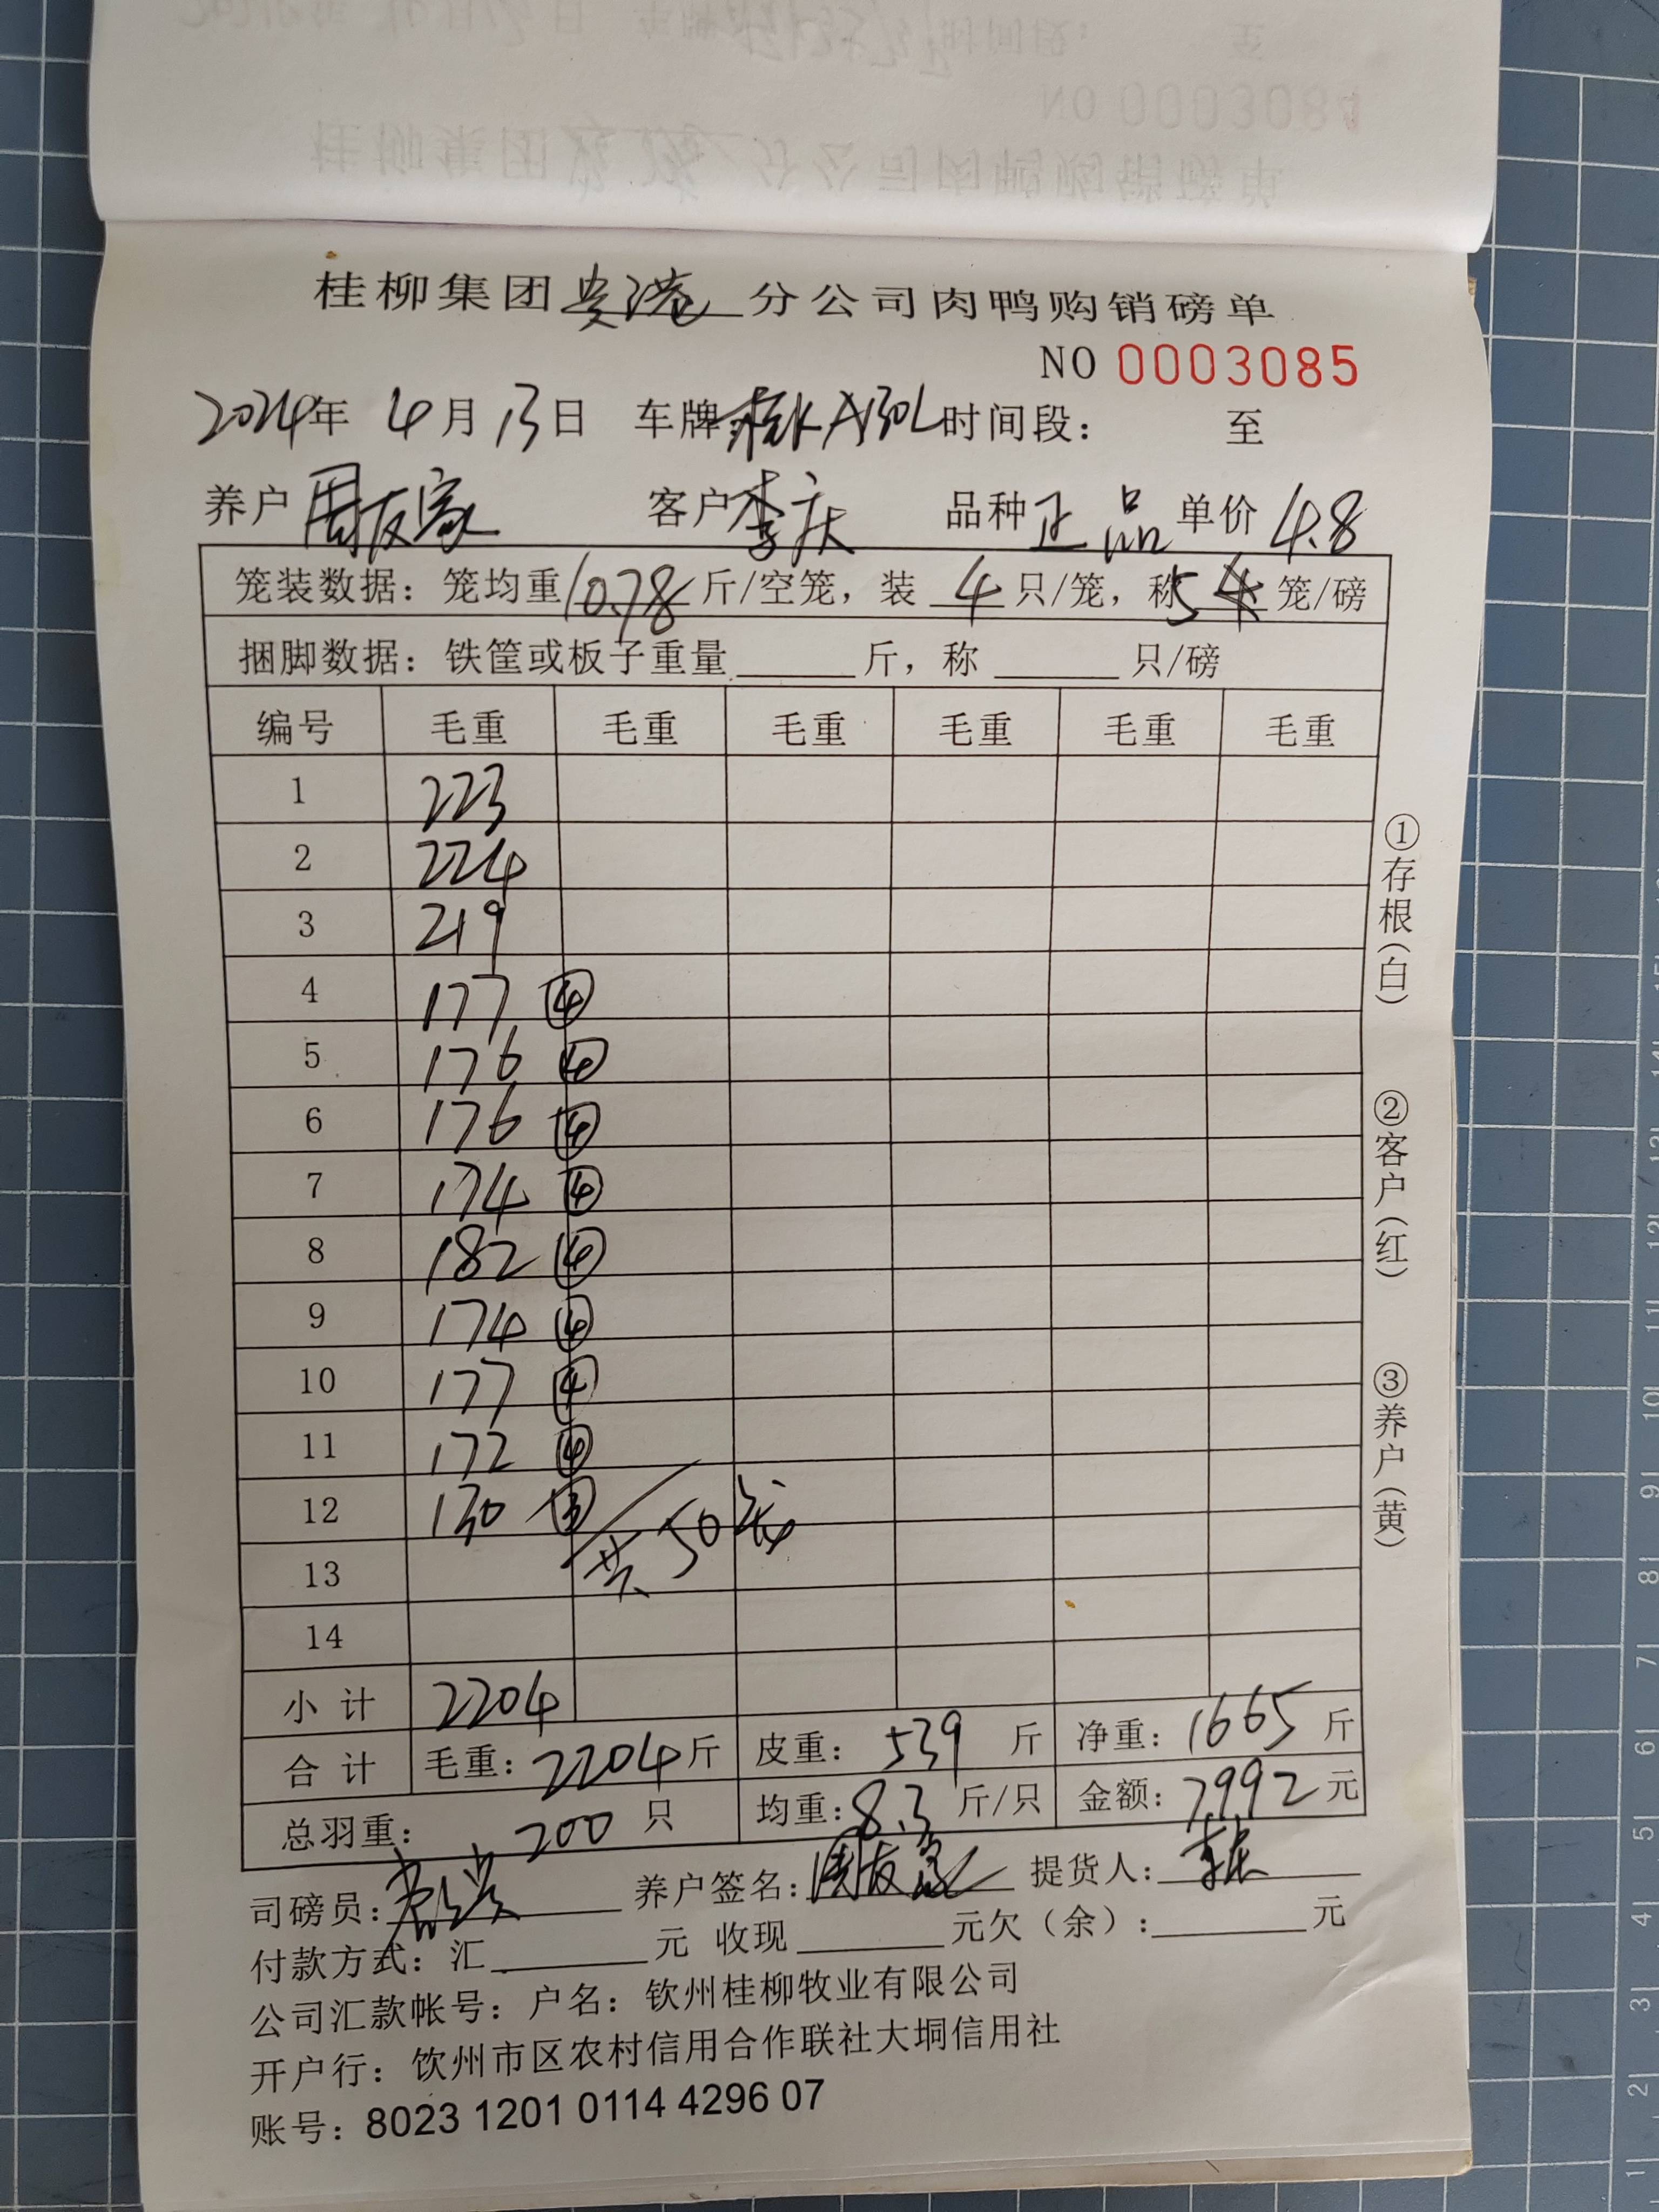 NO 0003084
桂柳集团贵港分公司肉鸭购销磅单
NO 0003085
2024年 4月13日 车牌 时间段： 至
养户 周友家 客户 李庆 品种 正品 单价 4.8
笼装数据：笼均重10.78斤/空笼，装 4 只/笼，称 5 笼/磅
捆脚数据：铁筐或板子重量______斤，称______只/磅
编号 毛重 毛重 毛重 毛重 毛重 毛重
1 223
2 224
3 219
4 177 ④
5 176 ④
6 176 ④
7 174 ④
8 182 ④
9 174 ④
10 177 ④
11 172 ④
12 130 ③
共50笼
13
14
小计 2204
合计 毛重：2204斤 皮重：539 斤 净重：1665斤
总羽重：200 只 均重：8.3 斤/只 金额：7992元
司磅员： 养户签名：周友家 提货人：
付款方式：汇______元 收现______元欠（余）：______元
公司汇款帐号：户名：钦州桂柳牧业有限公司
开户行：饮州市区农村信用合作联社大垌信用社
账号：8023 1201 0114 4296 07
①存根（白）
②客户（红）
③养户（黄）
15
14
13
12
11
10
9
8
7
6
5
4
3
2
1